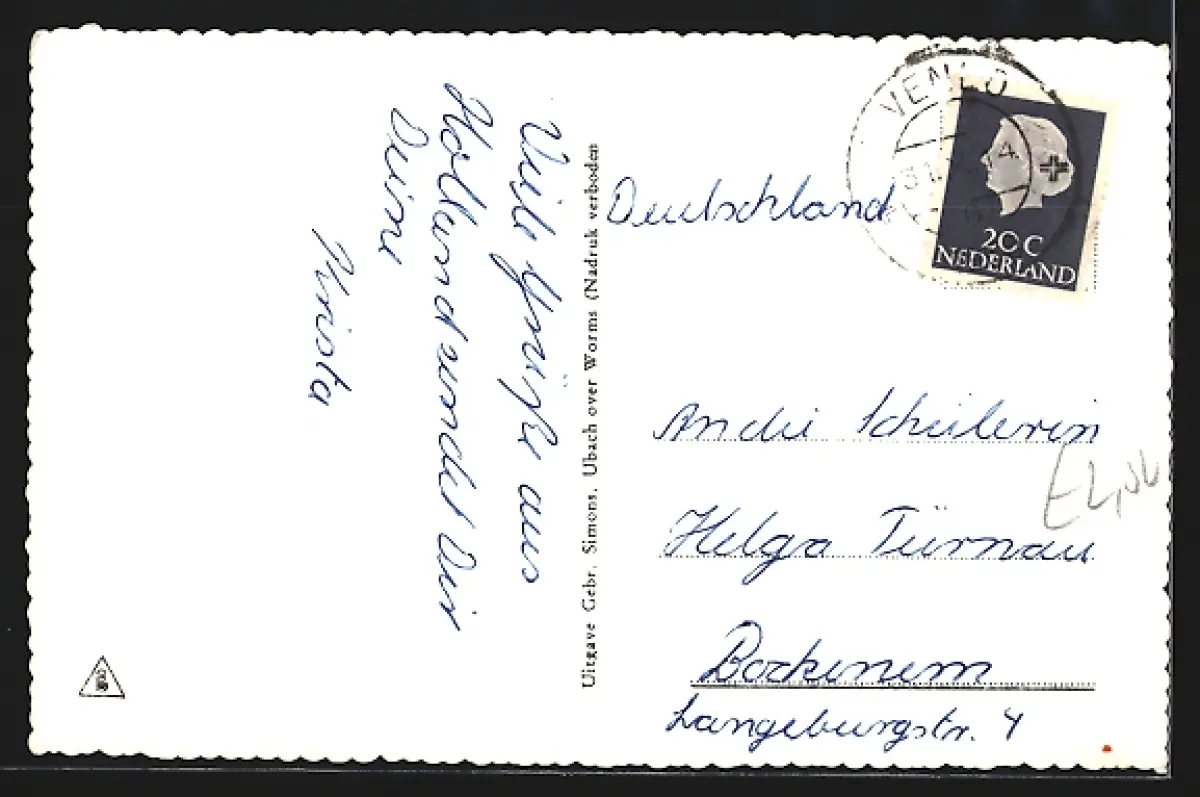 Viele Grüße aus
Holland sendet Dir
Deine
Krista
Uitgave Gebr. Simons. Ubach over Worms (Nadruk verboden
Deutschland
VENLO
20 C
NEDERLAND
An die Schülerin
Helga Türnau
Bockenem
Langeburgstr. 4